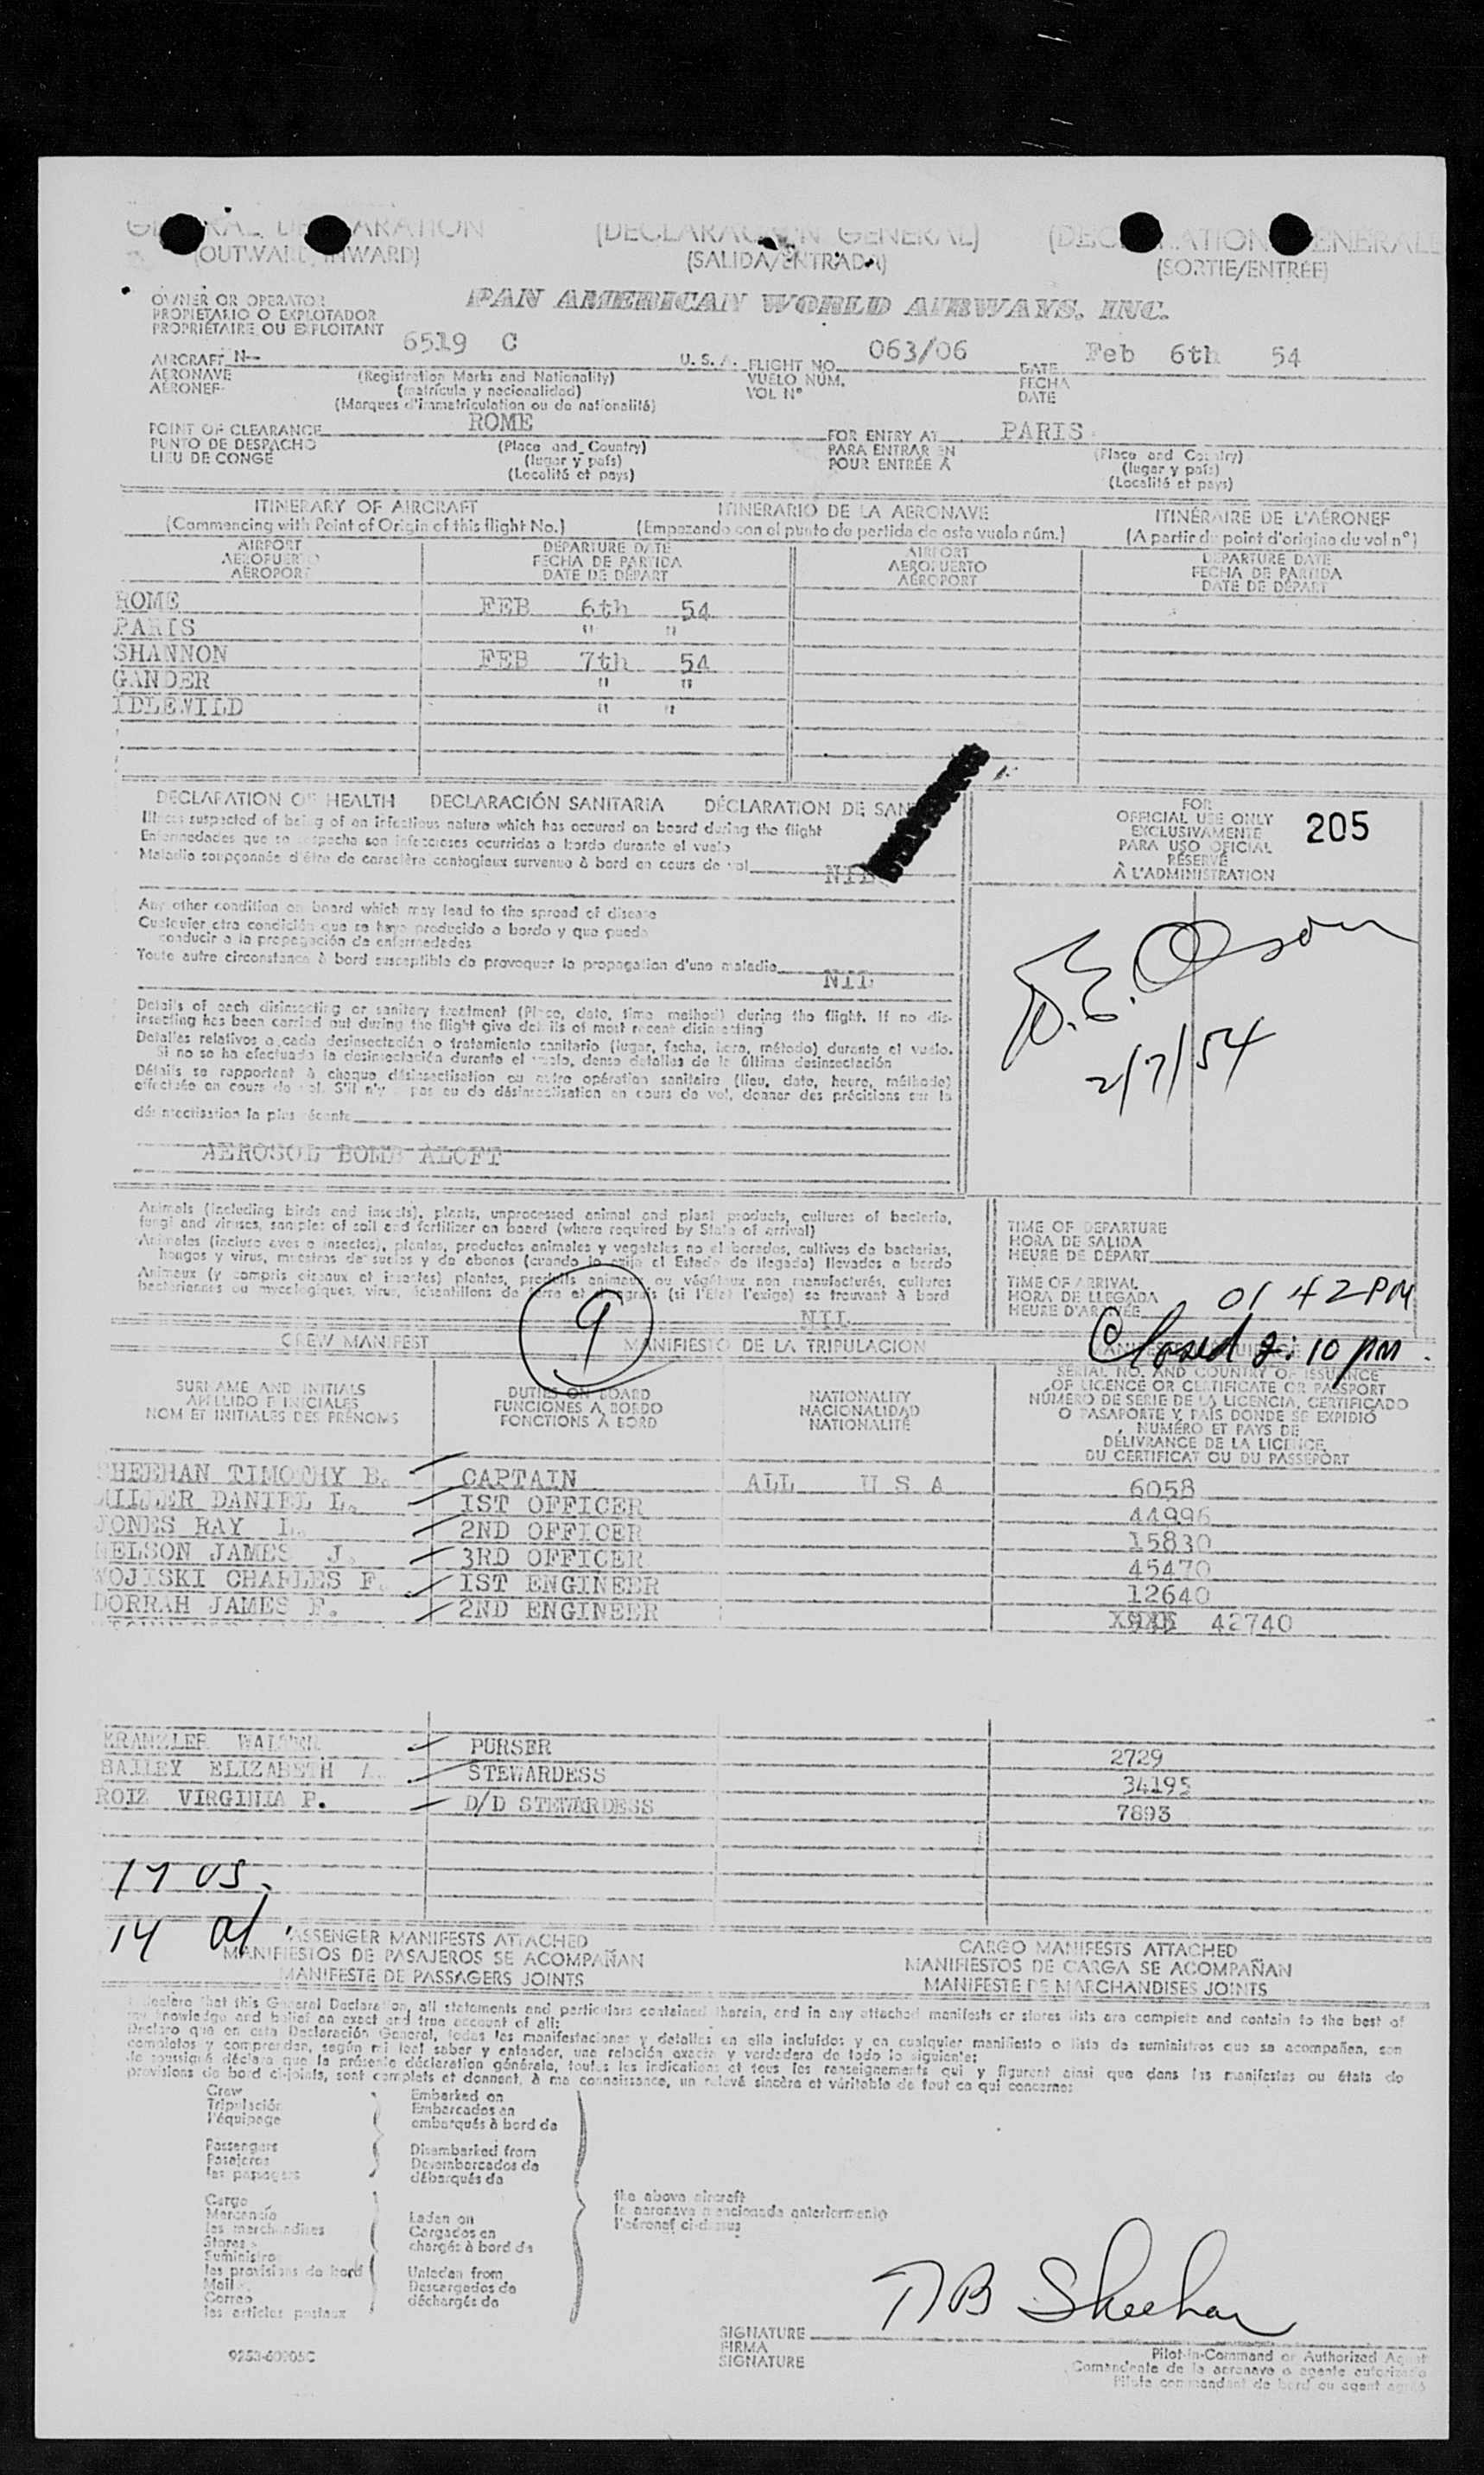 (OUTWARD, INWARD)
(DECLARACION GENERAL)
(SALIDA/ENTRADA)
(SORTIE/ENTRÉE)
OWNER OR OPERATOR
PROPIETARIO O EXPLOTADOR
PROPRIÉTAIRE OU EXPLOITANT
PAN AMERICAN WORLD AIRWAYS, INC.
AIRCRAFT N- 6519 C U. S. A.
AERONAVE
AÉRONEF
(Registration Marks and Nationality)
(matrícula y nacionalidad)
(Marques d'immatriculation ou de nationalité)
FLIGHT NO. 063/06
VUELO NÚM.
VOL Nº
DATE Feb 6th 54
FECHA
DATE
POINT OF CLEARANCE ROME
PUNTO DE DESPACHO
LIEU DE CONGÉ
(Place and Country)
(lugar y país)
(Localité et pays)
FOR ENTRY AT PARIS
PARA ENTRAR EN
POUR ENTRÉE À
(Place and Country)
(lugar y país)
(Localité et pays)
ITINERARY OF AIRCRAFT
(Commencing with Point of Origin of this flight No.)
ITINERARIO DE LA AERONAVE
(Empezando con el punto de partida de este vuelo núm.)
ITINÉRAIRE DE L'AÉRONEF
(A partir du point d'origine du vol nº)
AIRPORT
AEROPUERTO
AÉROPORT
DEPARTURE DATE
FECHA DE PARTIDA
DATE DE DÉPART
AIRPORT
AEROPUERTO
AÉROPORT
DEPARTURE DATE
FECHA DE PARTIDA
DATE DE DÉPART
ROME FEB 6th 54
PARIS " "
SHANNON FEB 7th 54
GANDER " "
IDLEWILD " "
DECLARATION OF HEALTH DECLARACIÓN SANITARIA DÉCLARATION DE SAN
Illness suspected of being of an infectious nature which has occured on board during the flight
Enfermedades que se sospecha son infecciosas ocurridas a bordo durante el vuelo
Maladie soupçonnée d'être de caractère contagieux survenue à bord en cours de vol NIL
Any other condition on board which may lead to the spread of disease
Cualquier otra condición que se haya producido a bordo y que pueda
conducir a la propagación de enfermedades
Toute autre circonstance à bord susceptible de provoquer la propagation d'une maladie NIL
Details of each disinsecting or sanitary treatment (Place, date, time method) during the flight. If no dis-
insecting has been carried out during the flight give details of most recent disinsecting
Detalles relativos a cada desinsectación o tratamiento sanitario (lugar, fecha, hora, método) durante el vuelo.
Si no se ha efectuado la desinsectación durante el vuelo, dense detalles de la última desinsectación
Détails se rapportant à chaque désinsectisation ou autre opération sanitaire (lieu, date, heure, méthode)
effectuée en cours de vol. S'il n'y pas eu de désinsectisation en cours de vol, donner des précisions sur la
désinsectisation la plus récente
AEROSOL BOMB ALOFT
FOR
OFFICIAL USE ONLY
EXCLUSIVAMENTE
PARA USO OFICIAL
RÉSERVÉ
À L'ADMINISTRATION
205
2/7/54
Animals (including birds and insects), plants, unprocessed animal and plant products, cultures of bacteria,
fungi and viruses, samples of soil and fertilizer on board (where required by State of arrival)
Animales (incluso aves e insectos), plantas, productos animales y vegetales no elaborados, cultivos de bacterias,
hongos y virus, muestras de suelos y de abonos (cuando lo exija el Estado de llegada) llevados a bordo
Animaux (y compris oiseaux et insectes) plantes, produits animaux ou végétaux non manufacturés, cultures
bactériennes ou mycologiques, virus, échantillons de terre et d'engrais (si l'Etat l'exige) se trouvant à bord
NIL
TIME OF DEPARTURE
HORA DE SALIDA
HEURE DE DÉPART
TIME OF ARRIVAL
HORA DE LLEGADA
HEURE D'ARRIVÉE
01 42 PM
Closed 2:10 pm.
9
CREW MANIFEST
MANIFIESTO DE LA TRIPULACION
SURNAME AND INITIALS
APELLIDO E INICIALES
NOM ET INITIALES DES PRÉNOMS
DUTIES ON BOARD
FUNCIONES A BORDO
FONCTIONS À BORD
NATIONALITY
NACIONALIDAD
NATIONALITÉ
SERIAL NO. AND COUNTRY OF ISSUANCE
OF LICENCE OR CERTIFICATE OR PASSPORT
NÚMERO DE SERIE DE LA LICENCIA, CERTIFICADO
O PASAPORTE Y PAÍS DONDE SE EXPIDIÓ
NUMÉRO ET PAYS DE
DÉLIVRANCE DE LA LICENCE,
DU CERTIFICAT OU DU PASSEPORT
SHEEHAN TIMOTHY B. CAPTAIN ALL U S A 6058
MILLER DANIEL L. 1ST OFFICER 44996
JONES RAY L. 2ND OFFICER 15830
NELSON JAMES J. 3RD OFFICER 45470
WOJISKI CHARLES F. 1ST ENGINEER 12640
DORRAH JAMES F. 2ND ENGINEER 42740
KRANZLER WALTER PURSER 2729
BAILEY ELIZABETH A. STEWARDESS 34195
ROIZ VIRGINIA P. D/D STEWARDESS 7893
17 US.
14 al
PASSENGER MANIFESTS ATTACHED
MANIFIESTOS DE PASAJEROS SE ACOMPAÑAN
MANIFESTE DE PASSAGERS JOINTS
CARGO MANIFESTS ATTACHED
MANIFIESTOS DE CARGA SE ACOMPAÑAN
MANIFESTE DE MARCHANDISES JOINTS
I declare that this General Declaration, all statements and particulars contained therein, and in any attached manifests or stores lists are complete and contain to the best of
my knowledge and belief an exact and true account of all:
Declaro que en esta Declaración General, todas las manifestaciones y detalles en ella incluidos y en cualquier manifiesto o lista de suministros que se acompañen, son
completos y comprenden, según mi leal saber y entender, una relación exacta y verdadera de todo lo siguiente:
Je soussigné déclare que la présente déclaration générale, toutes les indications et tous les renseignements qui y figurent ainsi que dans les manifestes ou états de
provisions de bord ci-joints, sont complets et donnent, à ma connaissance, un relevé sincère et véritable de tout ce qui concerne:
Crew
Tripulación
l'équipage
Passengers
Pasajeros
les passagers
Cargo
Mercancía
les marchandises
Stores
Suministro
les provisions de bord
Mail
Correo
les articles postaux
Embarked on
Embarcados en
embarqués à bord de
Disembarked from
Desembarcados de
débarqués de
Laden on
Cargados en
chargés à bord de
Unladen from
Descargados de
déchargés de
the above aircraft
la aeronave mencionada anteriormente
l'aéronef ci-dessus
T B Sheehan
SIGNATURE
FIRMA
SIGNATURE
Pilot-in-Command or Authorized Agent
Comandante de la aeronave o agente autorizado
Pilote commandant de bord ou agent agréé